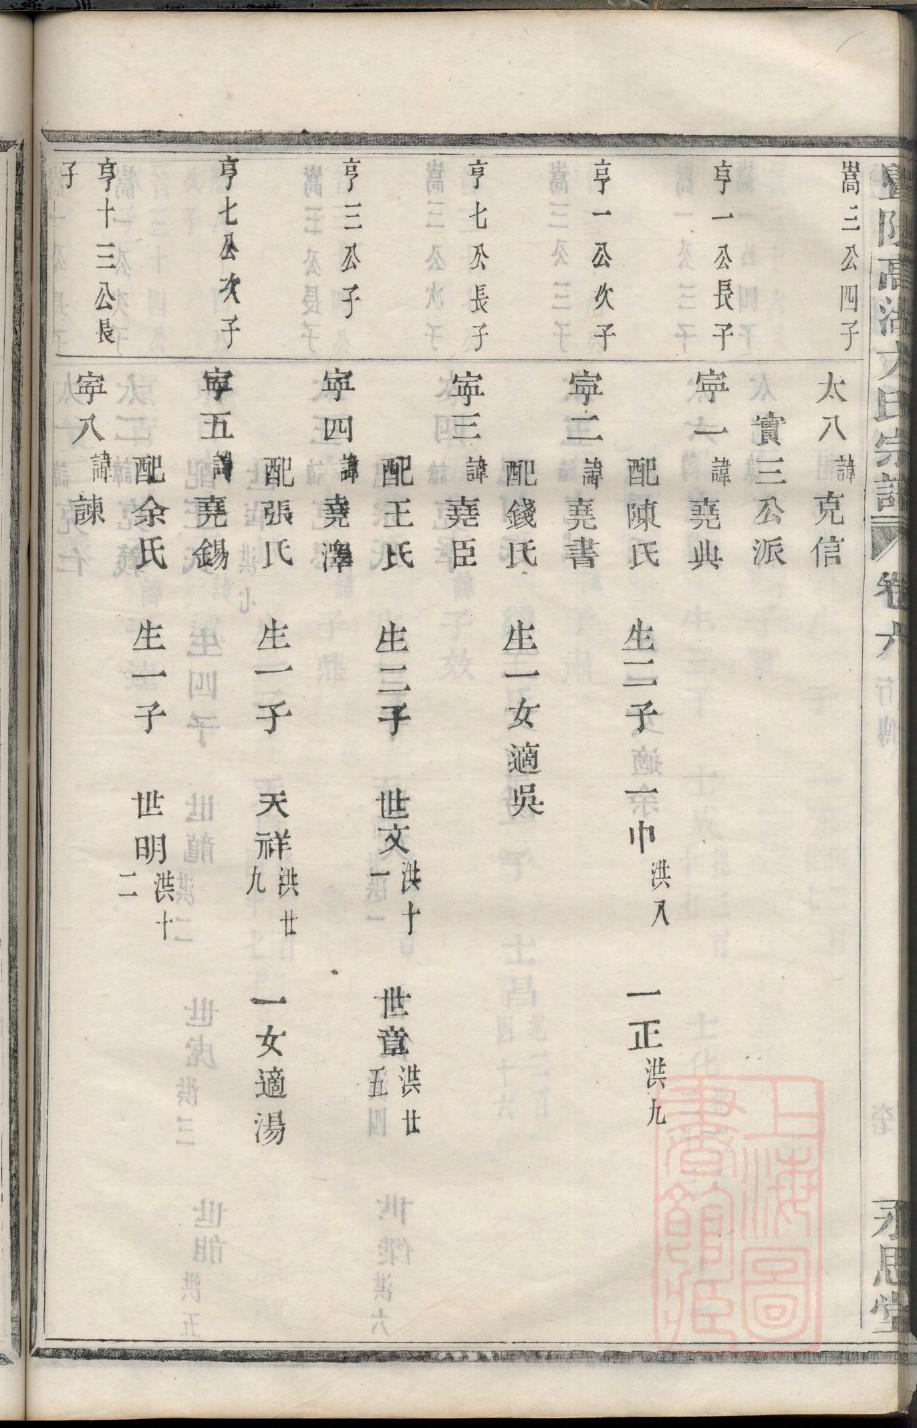 宗譜 卷六
永思堂
嵩三公四子
太八諱克信
實三公派
亨一公長子
寕一諱堯典
配陳氏 生二子 一巾洪八 一正洪九
亨一公次子
寕二諱堯書
配錢氏 生一女適吳
亨七公長子
寕三諱堯臣
配王氏 生二子 世文洪十一 世章洪廿五
亨三公子
寕四諱堯澤
配張氏 生一子 天祥洪廿九 一女適湯
亨七公次子
寕五諱堯錫
配余氏 生一子 世明洪十二
亨十三公長子
寕八諱諫
上海圖書館藏